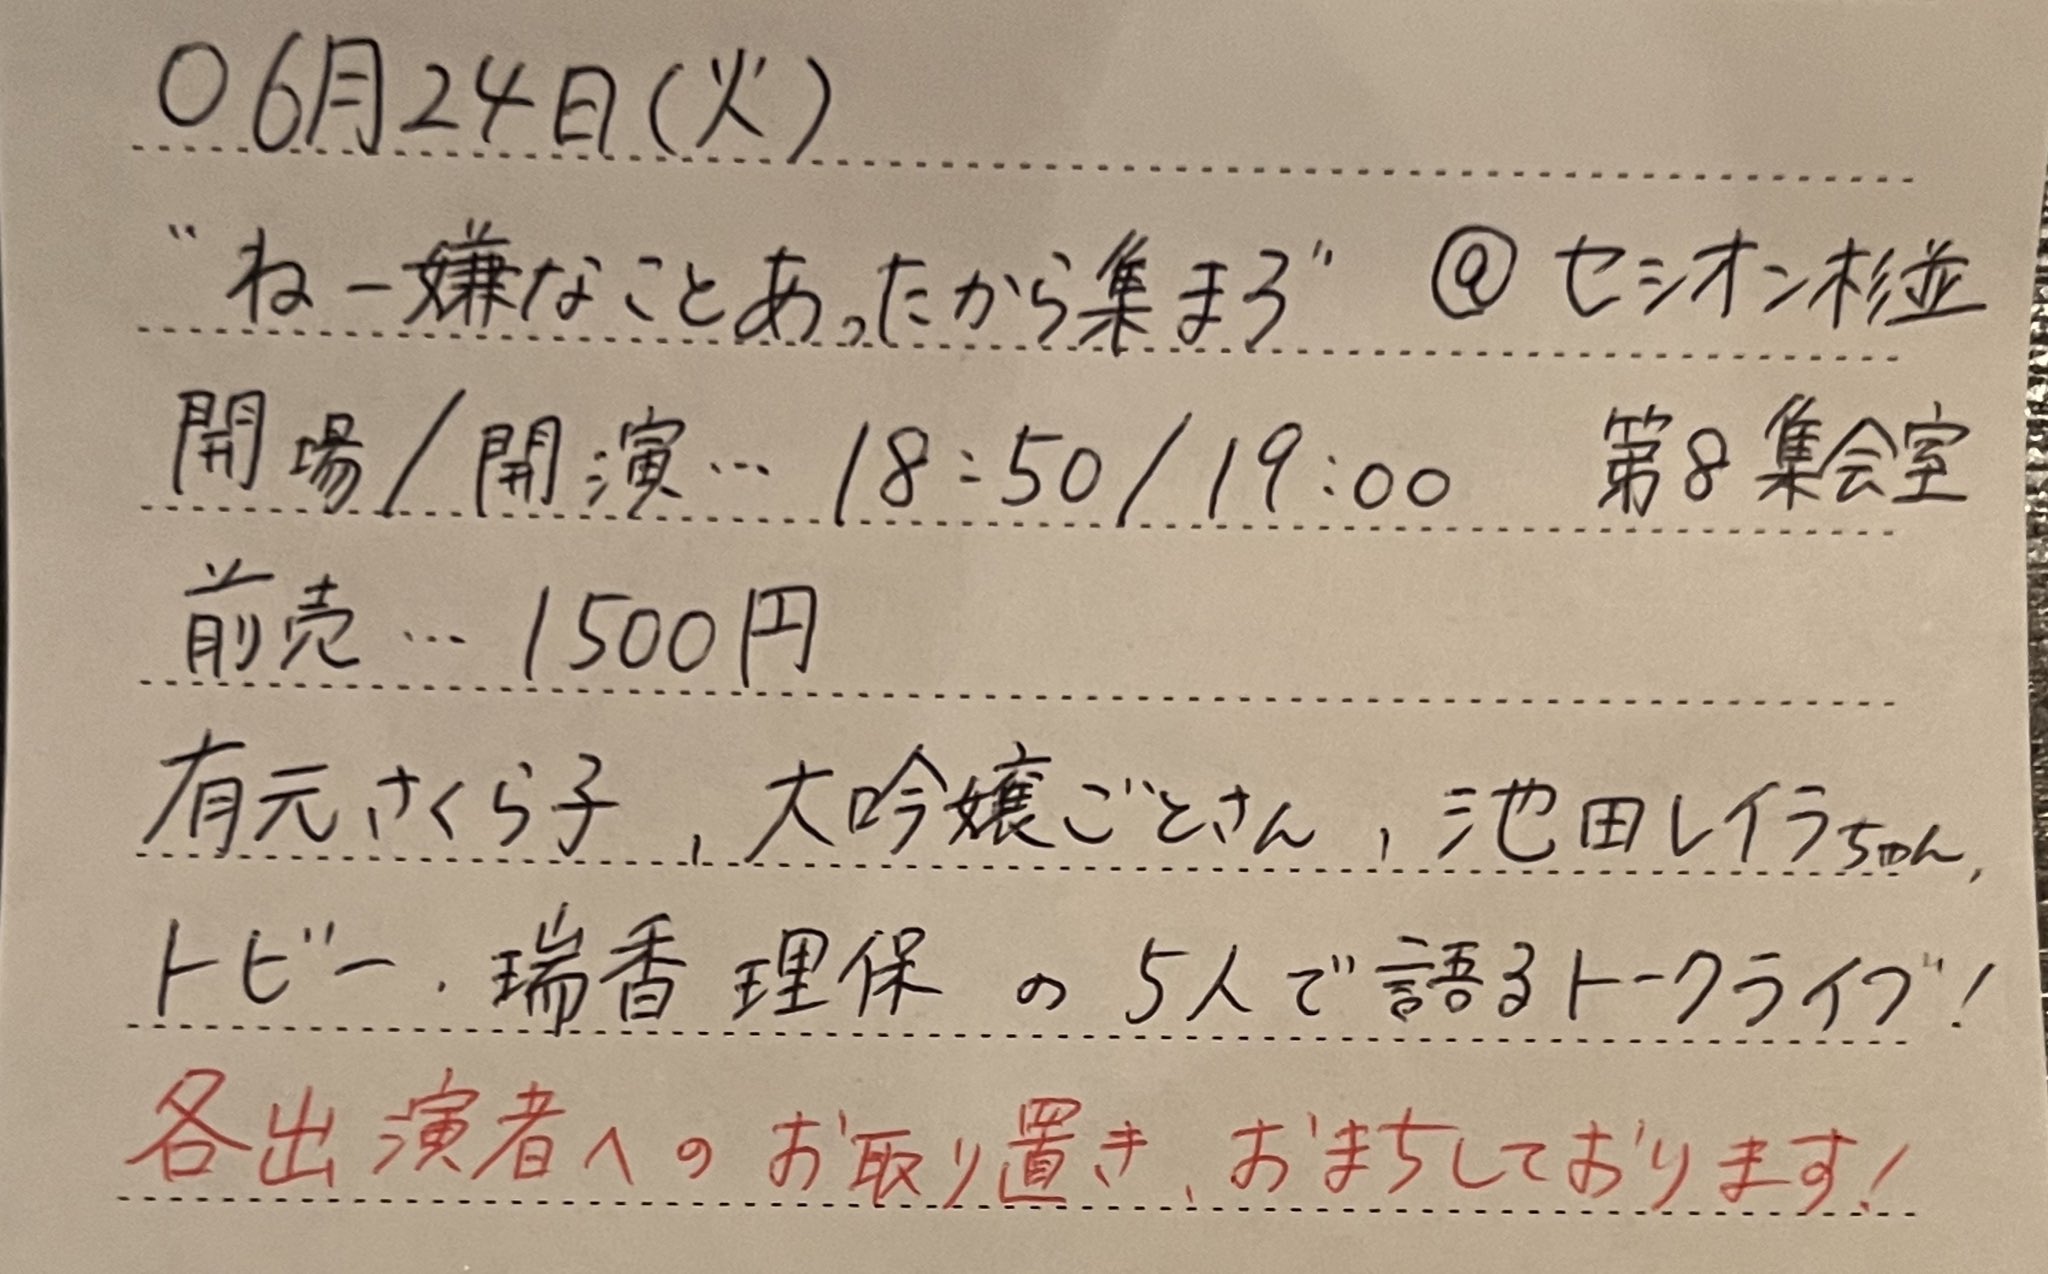 06月24日(火)
"ねー嫌なことあったから集まろ" @セシオン杉並
開場/開演… 18:50/19:00 第8集会室
前売… 1500円
有元さくら子、大吟嬢ごとさん、池田レイラちゃん、
トビー・瑞香 理保 の 5人で語るトークライブ!
各出演者へのお取り置き、おまちしております!